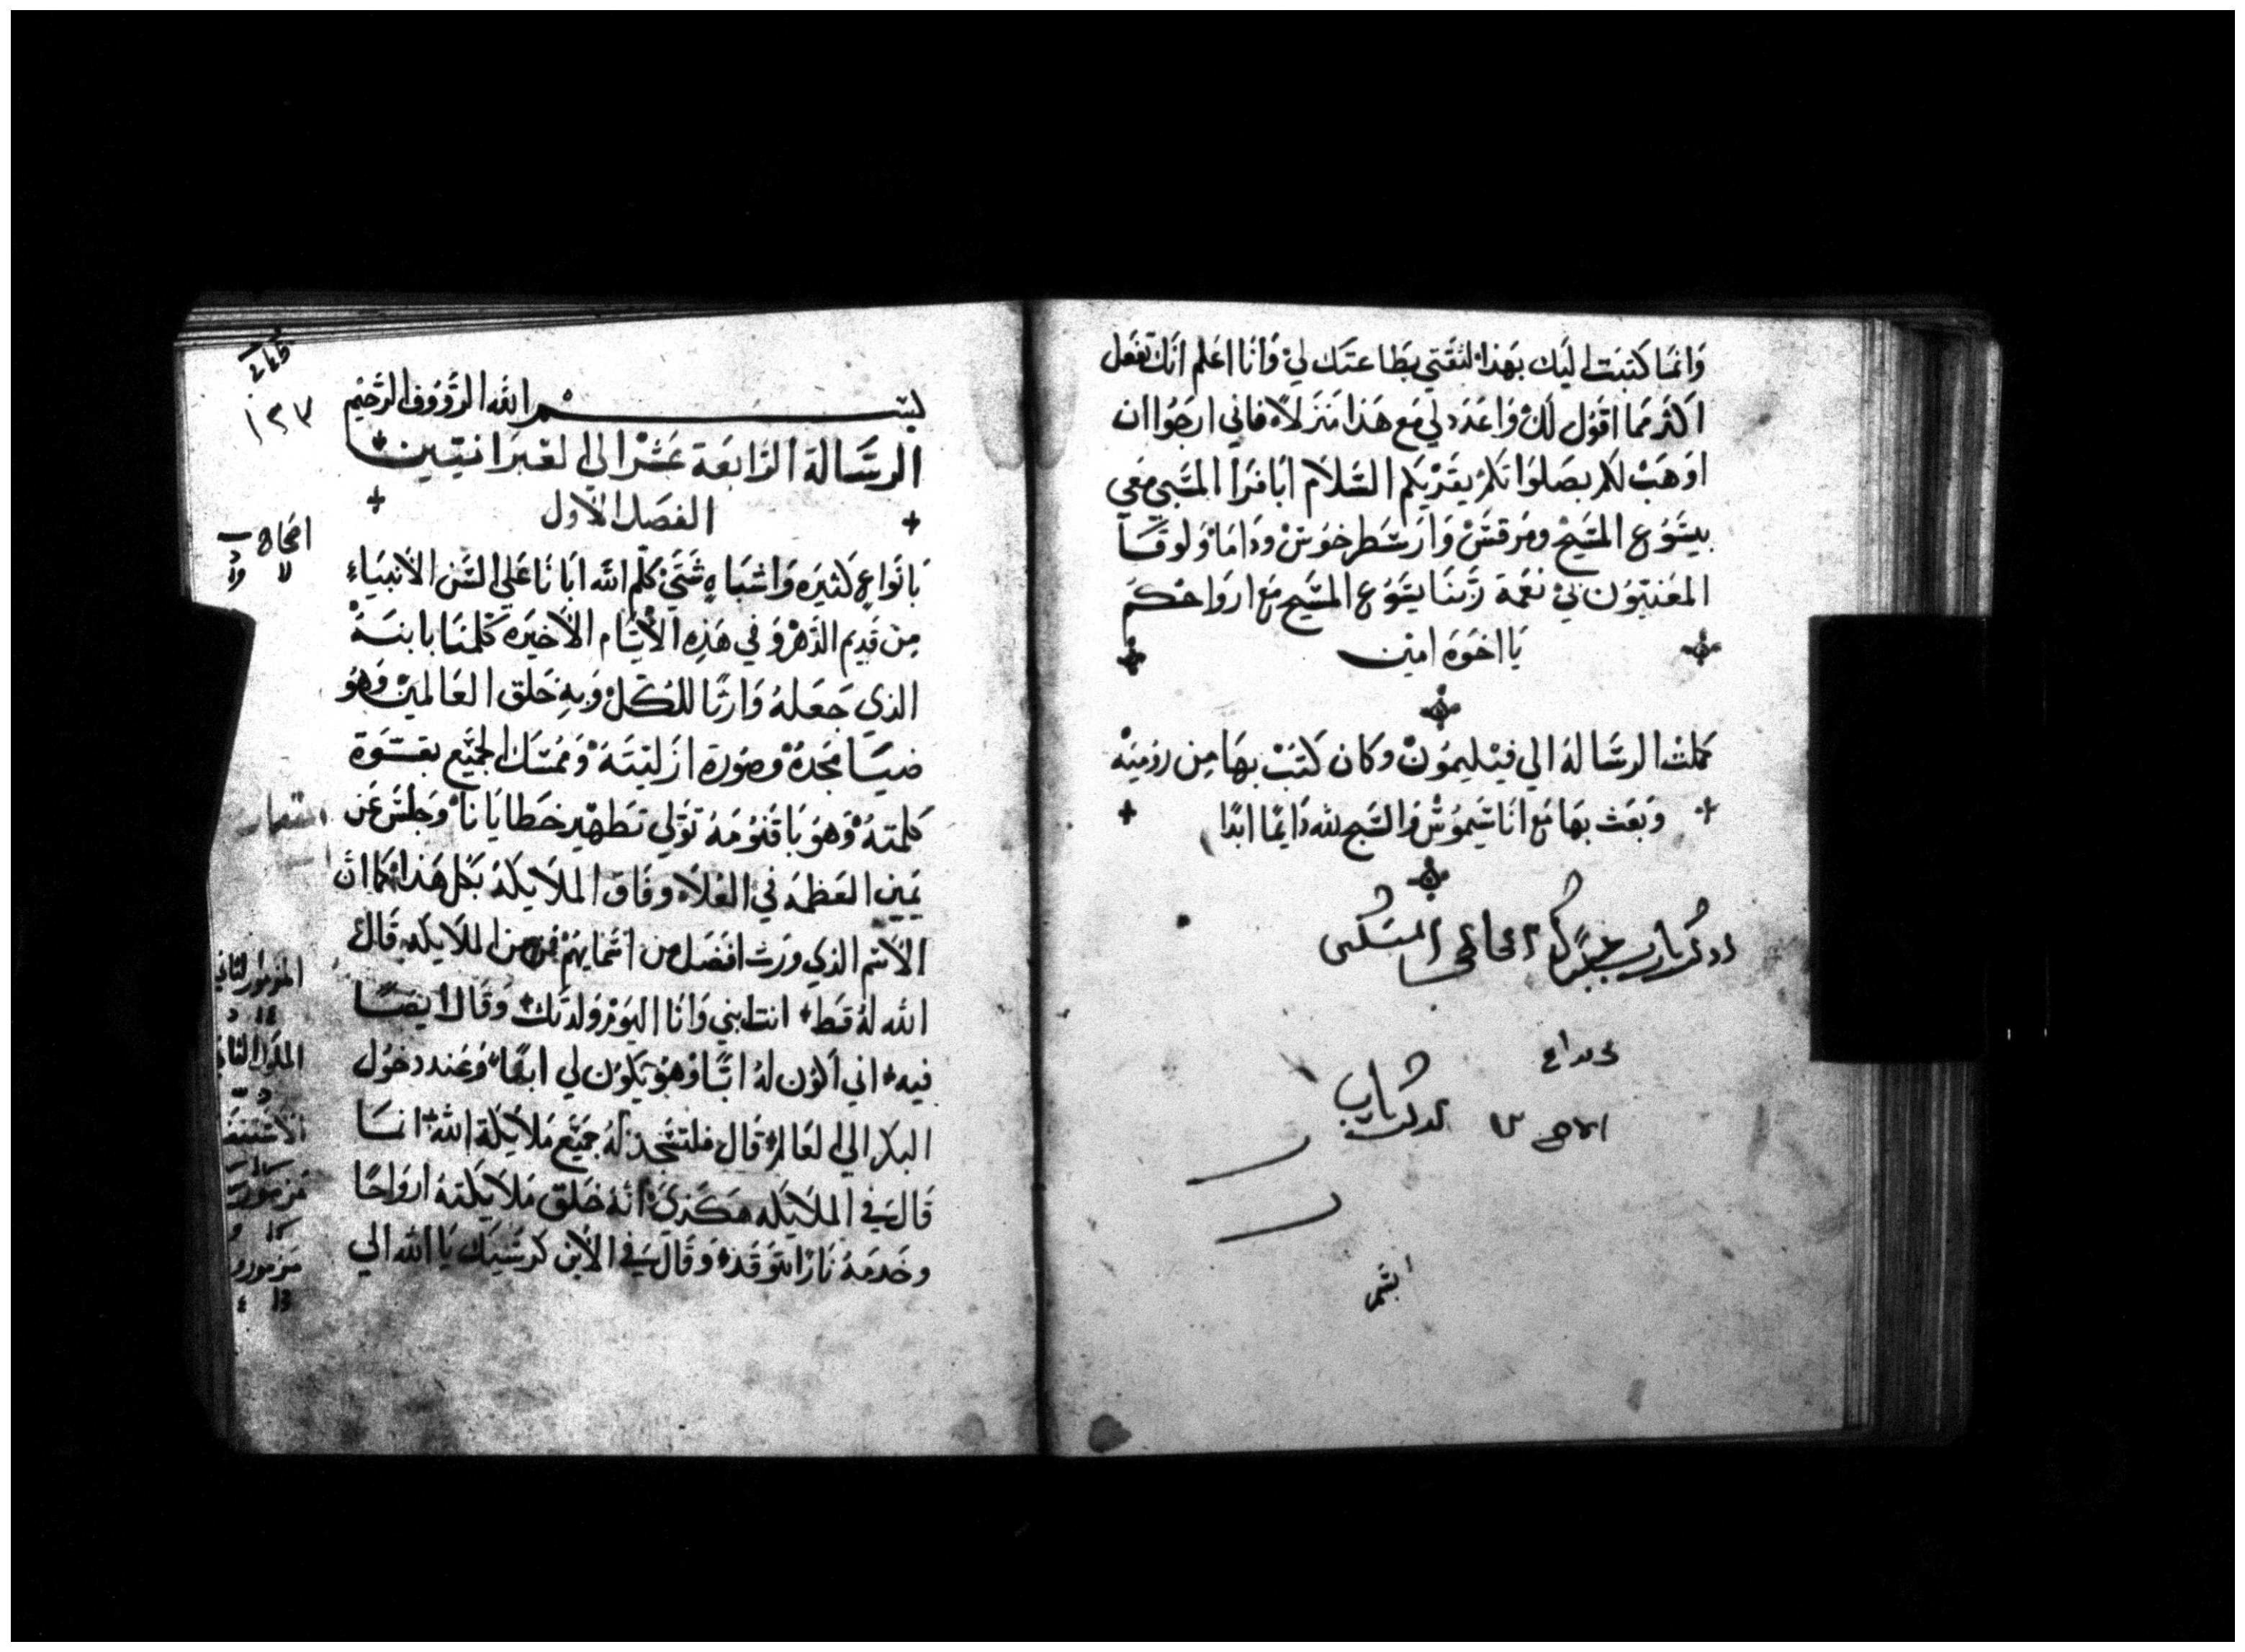 وَانمَا كتبَت اليَك بهَذا لثقتي بطَاعتَك لي وَانَا اعلم انك تفعَل
اكثر مما اقوُل لك وَاعدَد لي مَع هَذا مَنزلاً فاني ارجُوا ان
اوهَبْ لكم بصَلوَاتكم يقريكم السَّلامَ ابَافرَا المسَبي مَعي
بيسَوُع المسَيحْ ومرقسَ وَارسَطرخوُسْ ودَامَا وَلوقَا
المعَنيّوُن في نعمَة ربّنَا يسَوُع المسَيح مَع اروَاحكم
يَا اخوَة امين
كملت الرسَالة الي فيليمُونْ وكان كتبْ بهَا مِن روُميَهْ
وَبعَث بهَا مَع انَاسَيموُسْ وَالسَّبح لله دَايمًا ابَدًا
اذكر يارب
يارب
بسَم الله الرَّؤوُف الرَّحيم
الرسَّالة الرَّابعَة عَشر الي العبرَانيّين
الفصَل الاول
بَانوَاع كثيرَه وَاشبَاهٍ شَتيّ كلّم الله ابَانَا عَلي السَّن الاَنبيَاء
مِن قَديم الدَّهرْ وَفي هَذِه الاَيَّام الاَخيرَه كلَّمنَا بابنهْ
الذي جَعَلهُ وَارثًا للكلّ وَبهِ خَلق العَالمينْ وَهوُ
ضيَا مجَدهُ وَصُورَة ازليتَهْ وَممُسَك الجمَيَع بقوَة
كلمتهُ وَهوُ بَاقنوُمهُ توَلي تَطهْير خطَايَانَا وَجلسَ عَن
يَمين العَظمَه في العُلاَ وفَاق الملاَيكَة بكل هَذا كمَا انّ
الاَسَم الذي وَرث افضَل من اسَمايهمْ فمن من الملاَيكَه قَال
الله لهُ قَط انت ابني وَانَا اليَوم وَلدتك وَقَال ايضًا
فيه اني اكوُن لهُ ابًا وَهوُ يَكوُن لي ابنًا وَعند دخوُل
البكر الي العَالم قَال فلتسَجد لهُ جميَع مَلاَيكة الله انمَا
قَال في الملاَيكَه هَكذيَ انهُ خَلق مَلاَيكتهُ ارواحًا
وخَدمَهُ نَارًا تتوَقد وَقَال في الاَبن كرسَيَك يَا الله الي
١٢٧
اصحاح
المزمور الثاني
الملوك الثاني
مزمور
مزمور